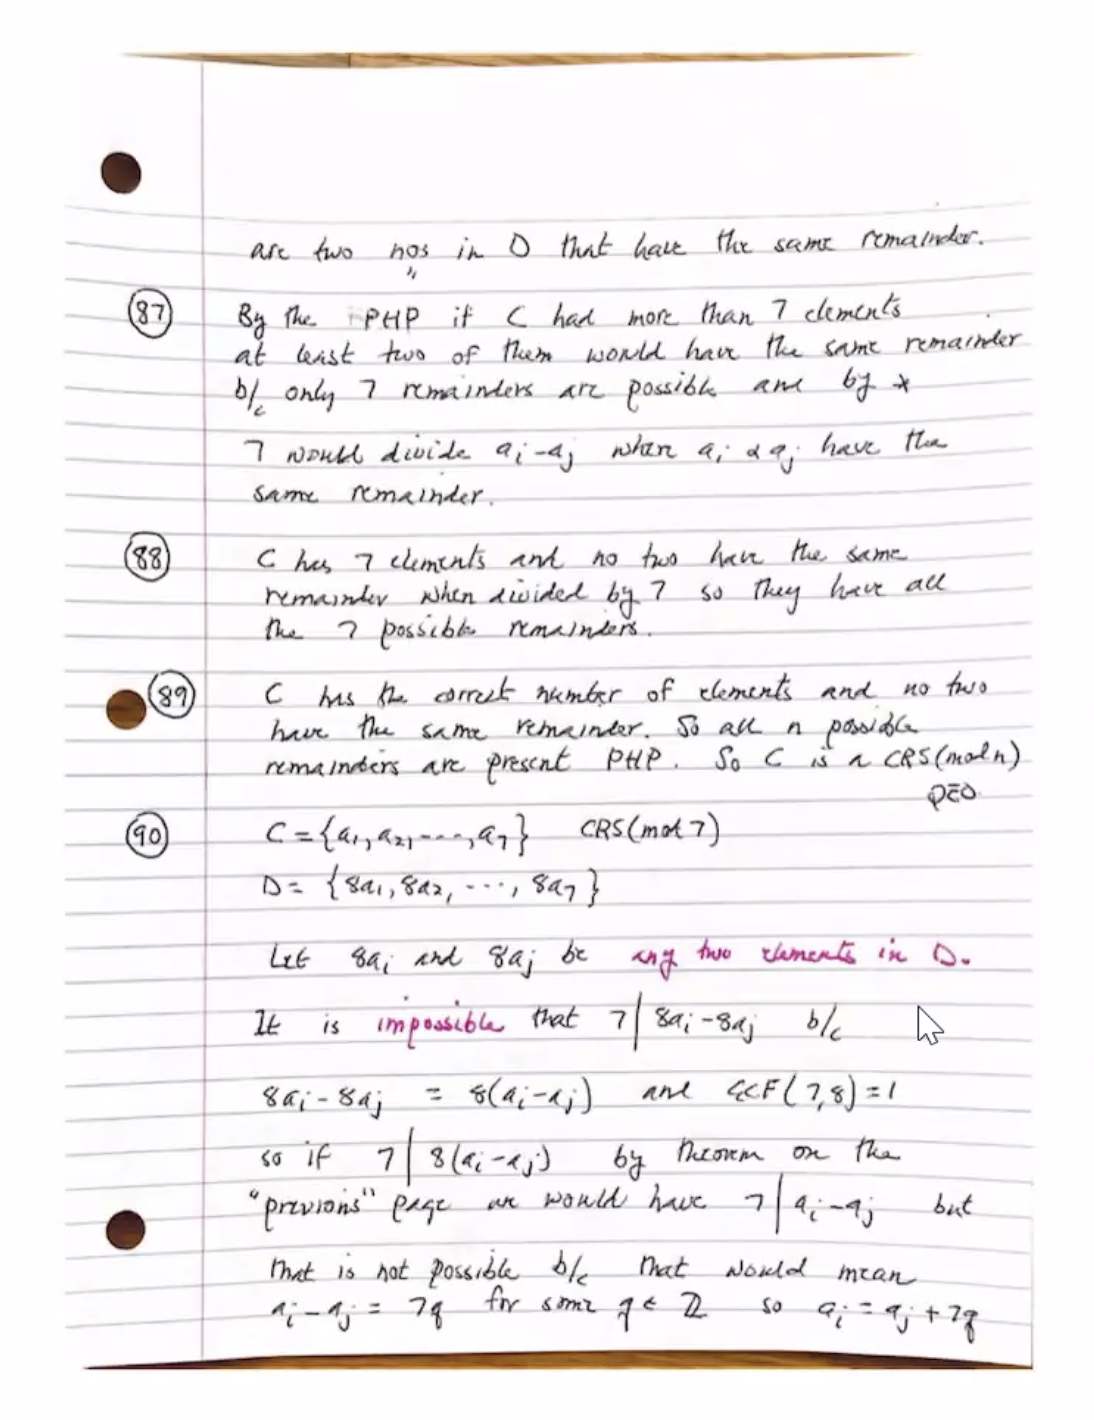 are two nos in D that have the same remainder.
"
87 By the PHP if C had more than 7 elements
at least two of them would have the same remainder
b/c only 7 remainders are possible and by *
7 would divide aᵢ-aⱼ where aᵢ & aⱼ have the
same remainder.
88 C has 7 elements and no two have the same
remainder when divided by 7 so they have all
the 7 possible remainders.
89 C has the correct number of elements and no two
have the same remainder. So all n possible
remainders are present PHP. So C is a CRS(mod n)
QED
90 C = {a₁, a₂, ----, a₇} CRS(mod 7)
D = {8a₁, 8a₂, ---, 8a₇}
Let 8aᵢ and 8aⱼ be any two elements in D.
It is impossible that 7 | 8aᵢ-8aⱼ b/c
8aᵢ - 8aⱼ = 8(aᵢ-aⱼ) and GCF(7,8)=1
so if 7 | 8(aᵢ-aⱼ) by theorem on the
"previous" page we would have 7 | aᵢ-aⱼ but
that is not possible b/c that would mean
aᵢ-aⱼ = 7q for some q ∈ ℤ so aᵢ = aⱼ + 7q